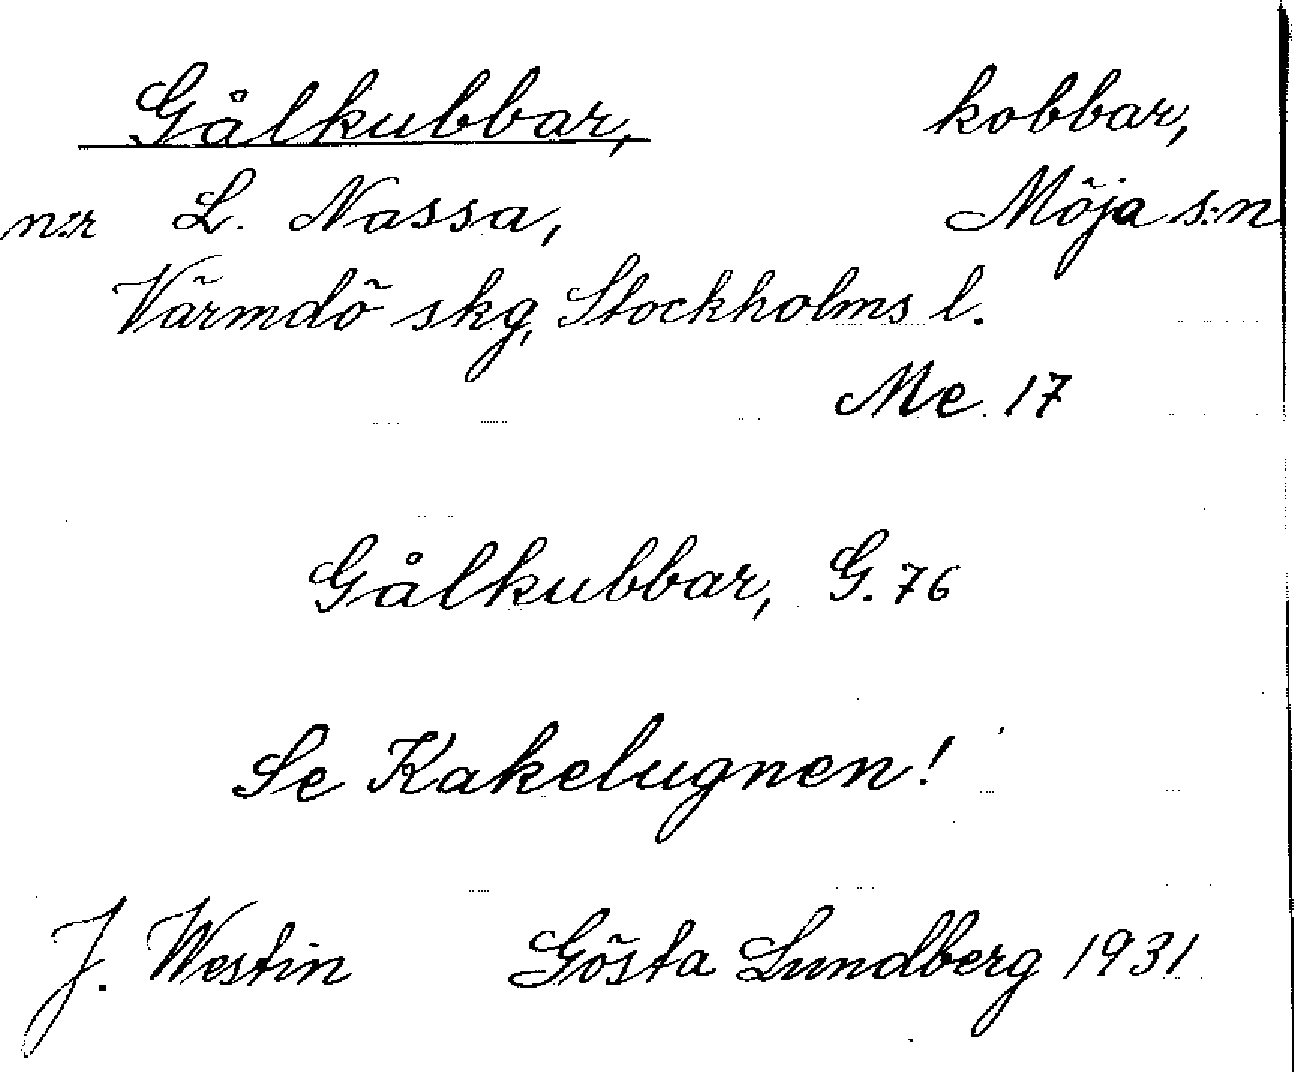 Gålkubbar, kobbar,
n:r L. Nassa, Möja s:n
Värmdö skg, Stockholms l.
Me. 17
Gålkubbar, G. 76
Se Kakelugnen!
J. Westin Gösta Lundberg 1931